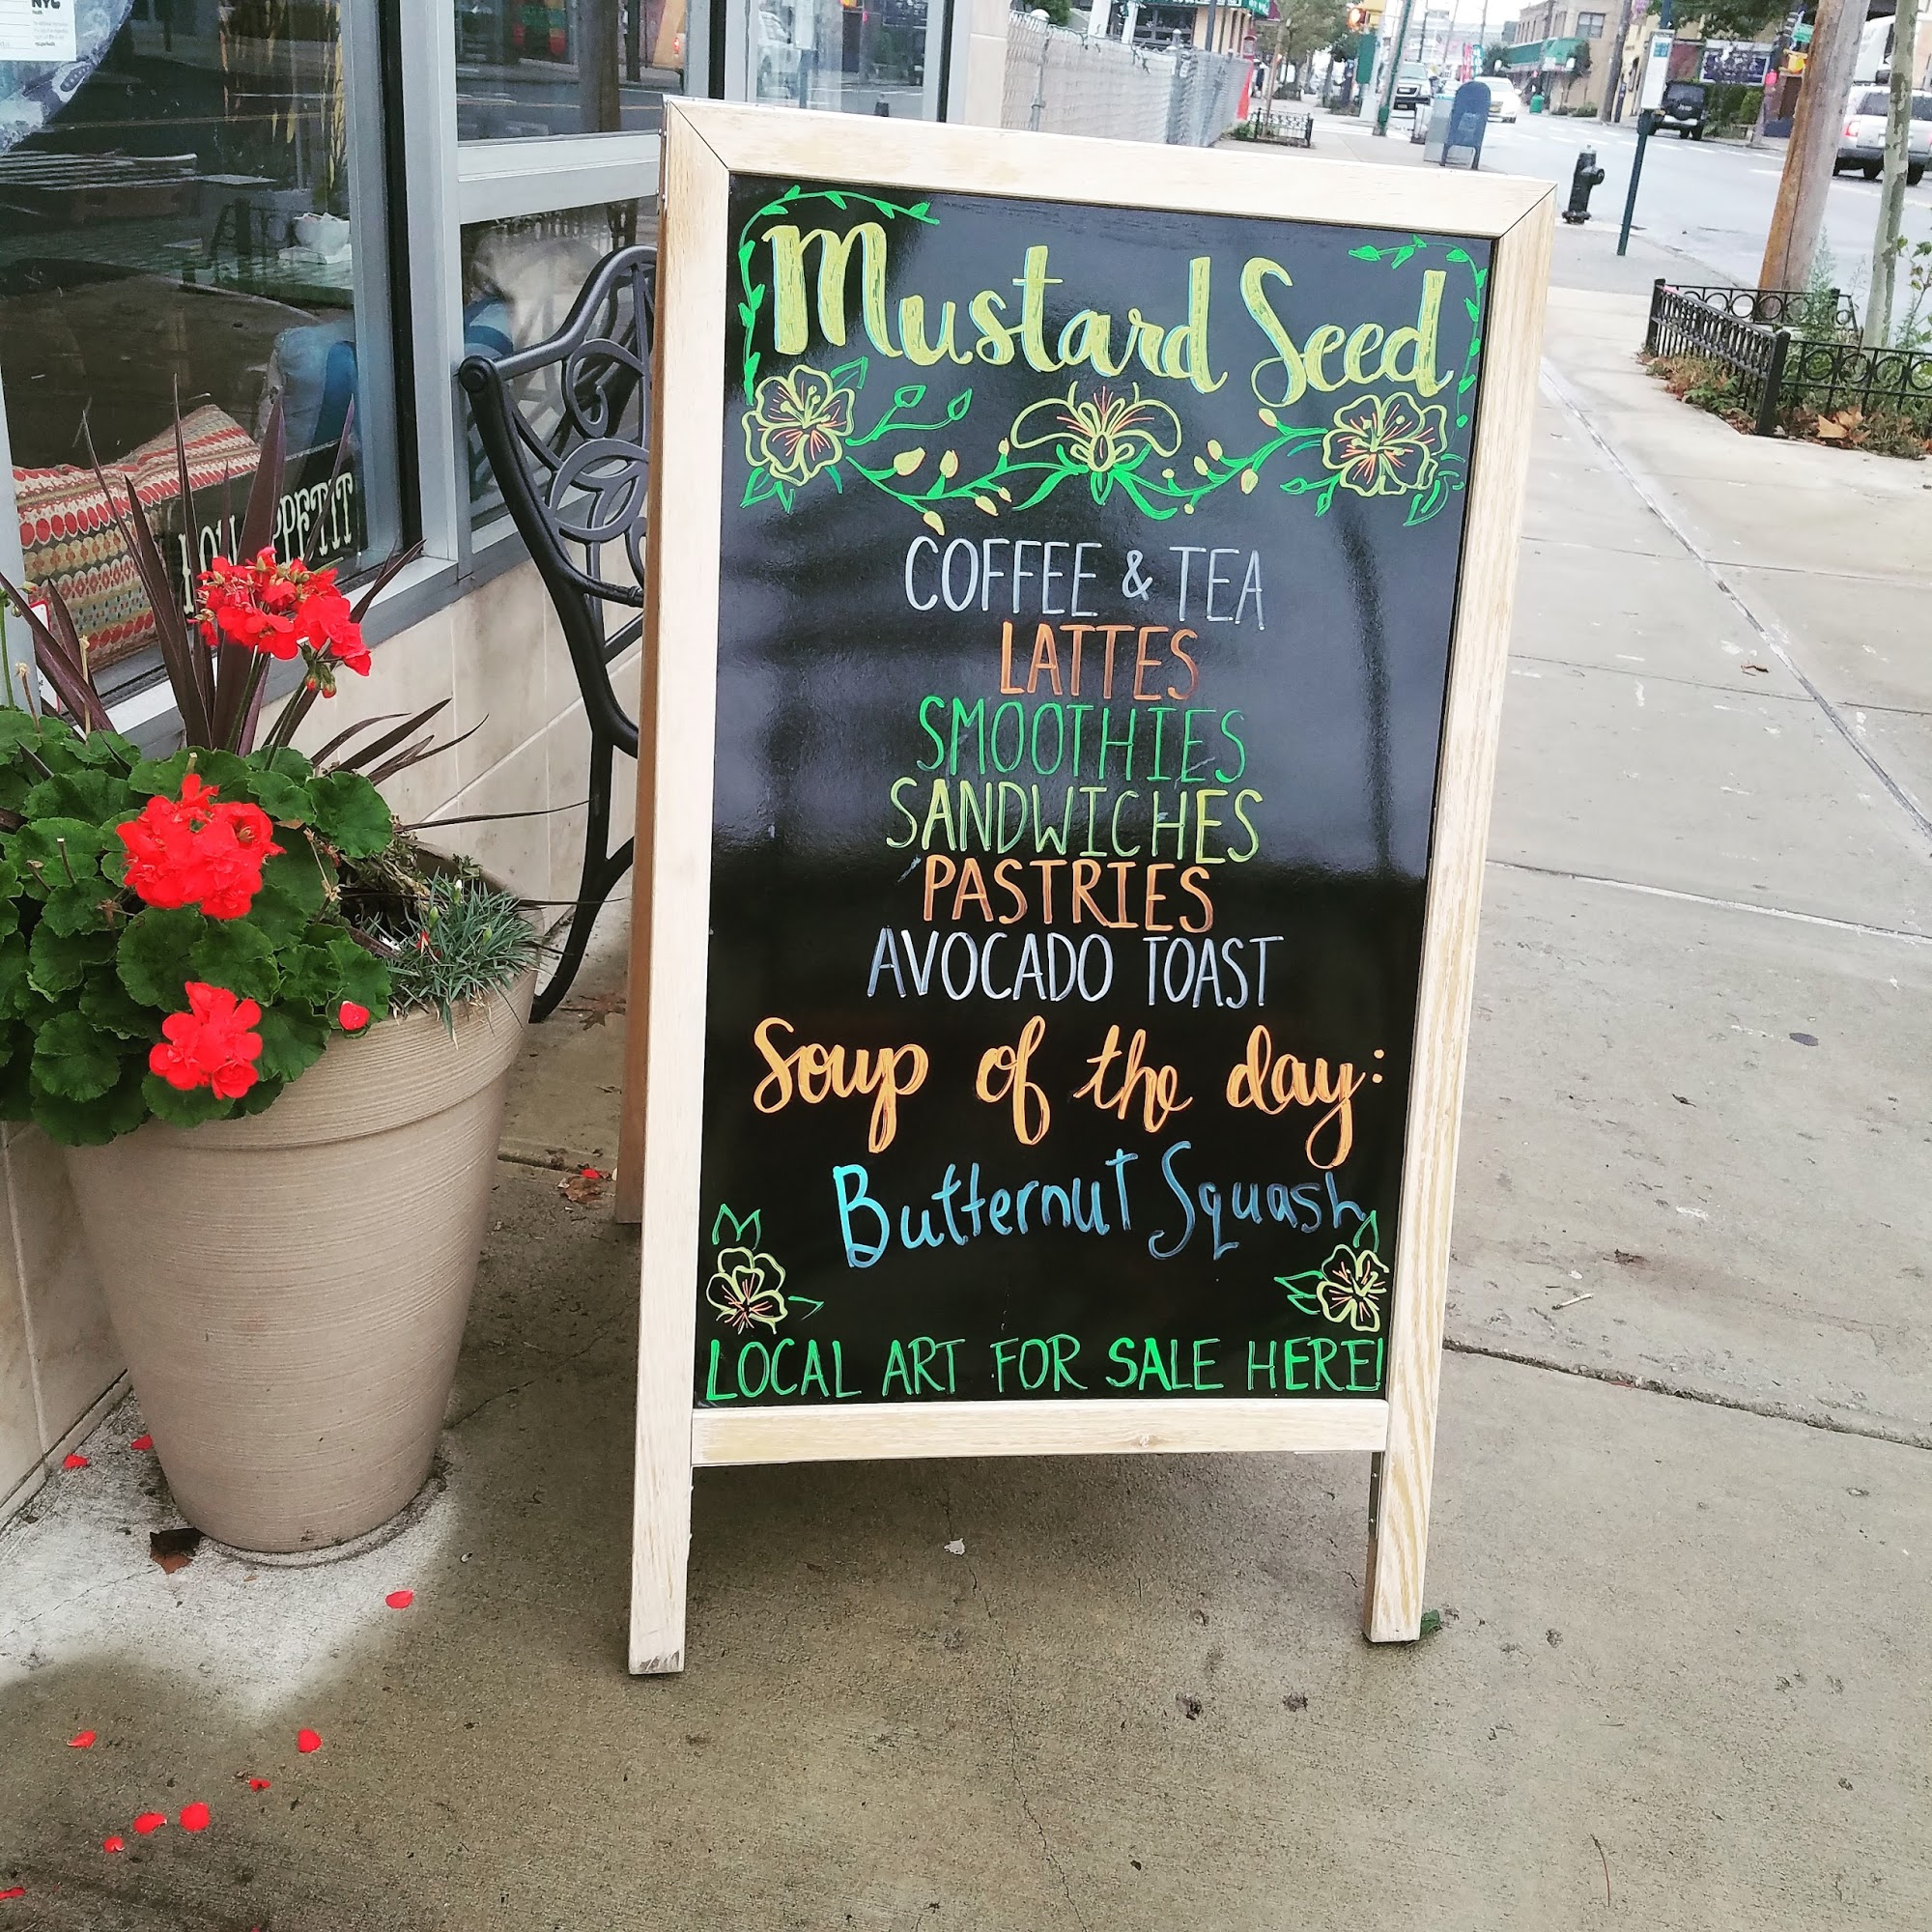 NYC
Mustard Seed
COFFEE & TEA
LATTES
SMOOTHIES
SANDWICHES
PASTRIES
AVOCADO TOAST
Soup of the day:
Butternut Squash
LOCAL ART FOR SALE HERE!